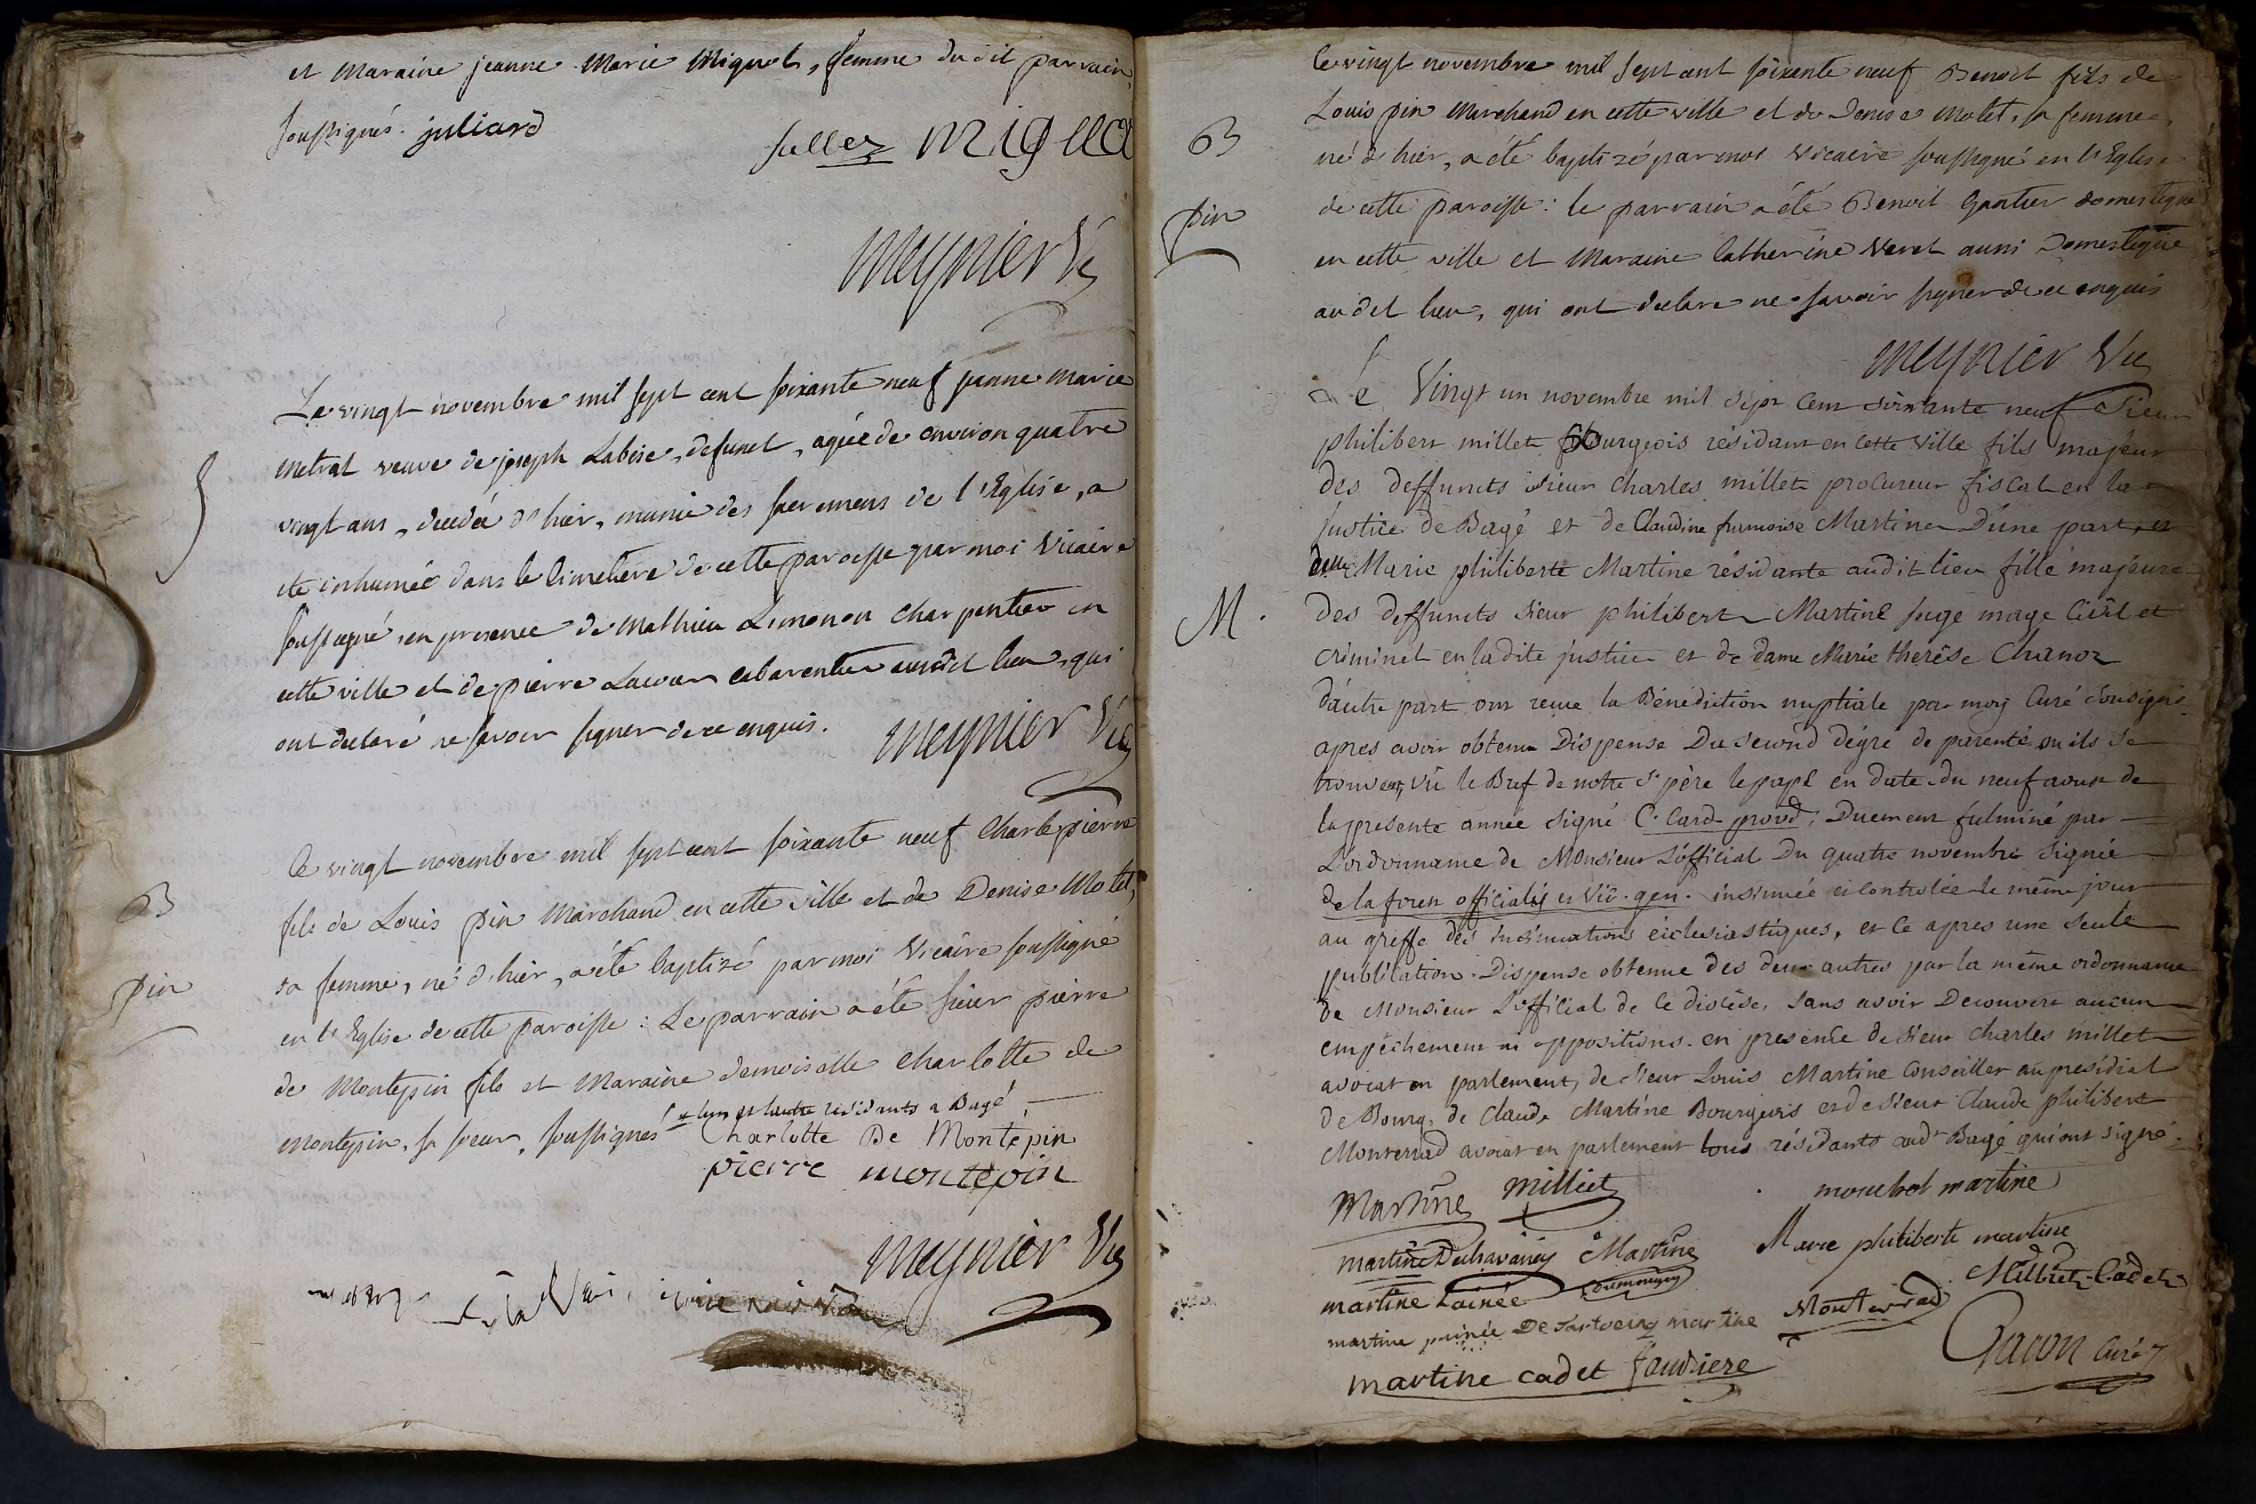 et Maraine jeanne Marie Miguet, femme du dit parrain
soussignés. juliard
sallez miguet
meynier Ve
Le vingt novembre mil sept cent soixante neuf jeanne marie
metrat veuve de joseph Labise, defunct, agée de environ quatre
vingt ans, decedée d'hier, munie des sacremens de l'Eglise, a
été inhumée dans le Cimetiere de cette paroisse par moi Vicaire
soussigné, en presence de Mathieu Limonon Charpentier en
cette ville et de pierre cabaretier audit lieu, qui
ont declaré ne savoir signer de ce enquis.
meynier Vic
B
pin
Ce vingt novembre mil sept cent soixante neuf Charle pierre
fils de Louis pin Marchand en cette ville et de Denise Molet,
sa femme, né d'hier, a été baptisé par moi Vicaire soussigné
en l'Eglise de cette paroisse : Le parrain a été sieur pierre
de Montepin fils et Maraine demoiselle Charlotte de
montepin, sa soeur, soussignés l'un et l'autre residants a Bagé
Charlotte De Montepin
pierre montepin
meynier Vic
B
pin
Ce vingt novembre mil sept cent soixante neuf Benoit fils de
Louis pin Marchand en cette ville et de Denise Molet, sa femme,
né d'hier, a été baptizé par moi Vicaire soussigné en l'Eglise
de cette paroisse : le parrain a été Benoit Gautier domestique
en cette ville et Maraine Catherine Veret aussi Domestique
au dit lieu, qui ont declaré ne savoir signer de ce enquis
meynier Vic
M.
Le Vingt un novembre mil sept Cent soixante neuf Sieur
philibert millet Bourgeois résidant en cette Ville fils majeur
des deffuncts Sieur Charles millet procureur fiscal en la
justice de Bagé et de Claudine françoise Martine D'une part, et
dlle Marie philiberte Martine résidante audit lieu fille majeure
des deffuncts Sieur philibert Martine Juge mage Civil et
criminel en ladite justice et de dame Marie therèse Chanoz
d'autre part ont reçue la Bénédiction nuptiale par moy Curé Sousigné
apres avoir obtenu Dispense Du second dégré de parenté où ils se
trouvent, vû le Bref de notre St père le pape en date du neuf aoust de
la presente année signé C. Card. provd, Duement fulminé par
L'ordonnance de Monsieur L'official Du quatre novembre signée
de la foren officialis et Vic. gen. insinuée et Controlée le même jour
au greffe des insinuations écclesiastiques, et ce apres une Seule
publication. Dispense obtenue des deux autres par la même ordonnance
de Monsieur L'official de ce diocèse, sans avoir Decouvert aucun
empêchement ni oppositions. en presence de Sieur Charles millet
avocat en parlement, de Sieur Louis Martine Conseiller au presidial
de Bourg, de Claude Martine Bourgeois et de Sieur Claude philibert
Monterrad avocat en parlement tous résidants aud. Bagé qui ont signé.
Martine milliet mouchot martine
martine Duchavaney Martine Marie philiberte martine
martine Lainée Milliet Cadet
martine puinée martine Monterrad
martine cadet faudriere Gacon Curé